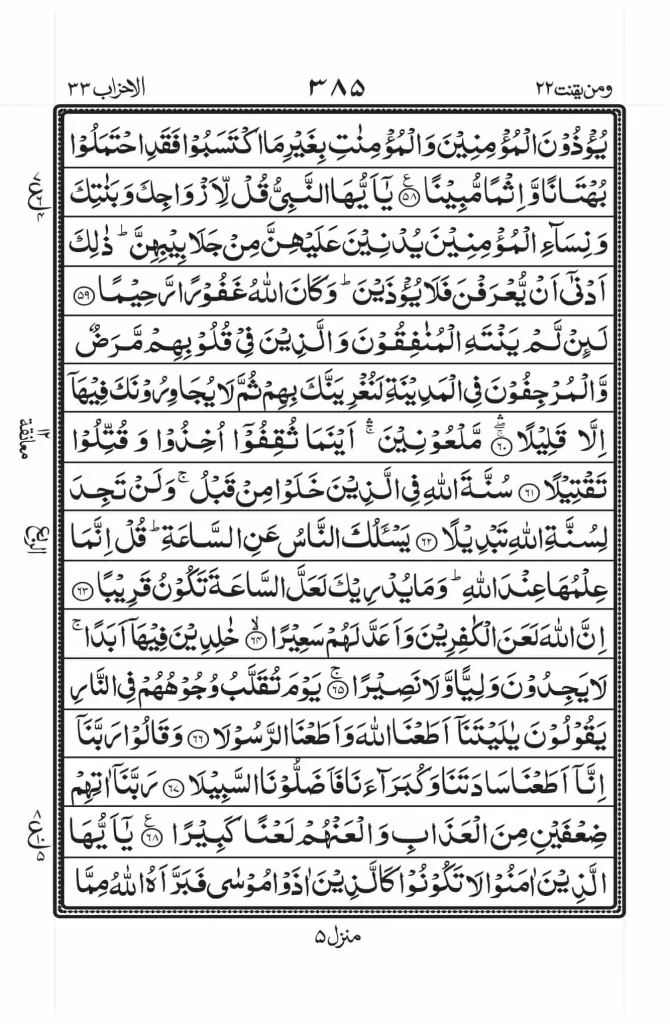 ومن یقنت ۲۲
۳۸۵
الاحزاب ۳۳
يُؤْذُوْنَ الْمُؤْمِنِيْنَ وَالْمُؤْمِنٰتِ بِغَيْرِ مَا اكْتَسَبُوْا فَقَدِ احْتَمَلُوْا
بُهْتَانًا وَّاِثْمًا مُّبِيْنًا ﴿۵۸﴾ يٰۤاَيُّهَا النَّبِىُّ قُلْ لِّاَزْوَاجِكَ وَبَنٰتِكَ
وَنِسَآءِ الْمُؤْمِنِيْنَ يُدْنِيْنَ عَلَيْهِنَّ مِنْ جَلَابِيْبِهِنَّ ؕ ذٰلِكَ
اَدْنٰۤى اَنْ يُّعْرَفْنَ فَلَا يُؤْذَيْنَ ؕ وَكَانَ اللّٰهُ غَفُوْرًا رَّحِيْمًا ﴿۵۹﴾
لَىِٕنْ لَّمْ يَنْتَهِ الْمُنٰفِقُوْنَ وَالَّذِيْنَ فِىْ قُلُوْبِهِمْ مَّرَضٌ
وَّالْمُرْجِفُوْنَ فِى الْمَدِيْنَةِ لَنُغْرِيَنَّكَ بِهِمْ ثُمَّ لَا يُجَاوِرُوْنَكَ فِيْهَاۤ
اِلَّا قَلِيْلًا ﴿۶۰﴾ مَّلْعُوْنِيْنَ ۛۚ اَيْنَمَا ثُقِفُوْۤا اُخِذُوْا وَقُتِّلُوْا
تَقْتِيْلًا ﴿۶۱﴾ سُنَّةَ اللّٰهِ فِى الَّذِيْنَ خَلَوْا مِنْ قَبْلُ ۚ وَلَنْ تَجِدَ
لِسُنَّةِ اللّٰهِ تَبْدِيْلًا ﴿۶۲﴾ يَسْـَٔلُكَ النَّاسُ عَنِ السَّاعَةِ ؕ قُلْ اِنَّمَا
عِلْمُهَا عِنْدَ اللّٰهِ ؕ وَمَا يُدْرِيْكَ لَعَلَّ السَّاعَةَ تَكُوْنُ قَرِيْبًا ﴿۶۳﴾
اِنَّ اللّٰهَ لَعَنَ الْكٰفِرِيْنَ وَاَعَدَّ لَهُمْ سَعِيْرًا ۙ﴿۶۴﴾ خٰلِدِيْنَ فِيْهَاۤ اَبَدًا ۚ
لَا يَجِدُوْنَ وَلِيًّا وَّلَا نَصِيْرًا ۚ﴿۶۵﴾ يَوْمَ تُقَلَّبُ وُجُوْهُهُمْ فِى النَّارِ
يَقُوْلُوْنَ يٰلَيْتَنَاۤ اَطَعْنَا اللّٰهَ وَاَطَعْنَا الرَّسُوْلَا ﴿۶۶﴾ وَقَالُوْا رَبَّنَاۤ
اِنَّاۤ اَطَعْنَا سَادَتَنَا وَكُبَرَآءَنَا فَاَضَلُّوْنَا السَّبِيْلَا ﴿۶۷﴾ رَبَّنَاۤ اٰتِهِمْ
ضِعْفَيْنِ مِنَ الْعَذَابِ وَالْعَنْهُمْ لَعْنًا كَبِيْرًا ﴿۶۸﴾ يٰۤاَيُّهَا
الَّذِيْنَ اٰمَنُوْا لَا تَكُوْنُوْا كَالَّذِيْنَ اٰذَوْا مُوْسٰى فَبَرَّاَهُ اللّٰهُ مِمَّا
معانقة ۱۲
الربع
منزل ۵